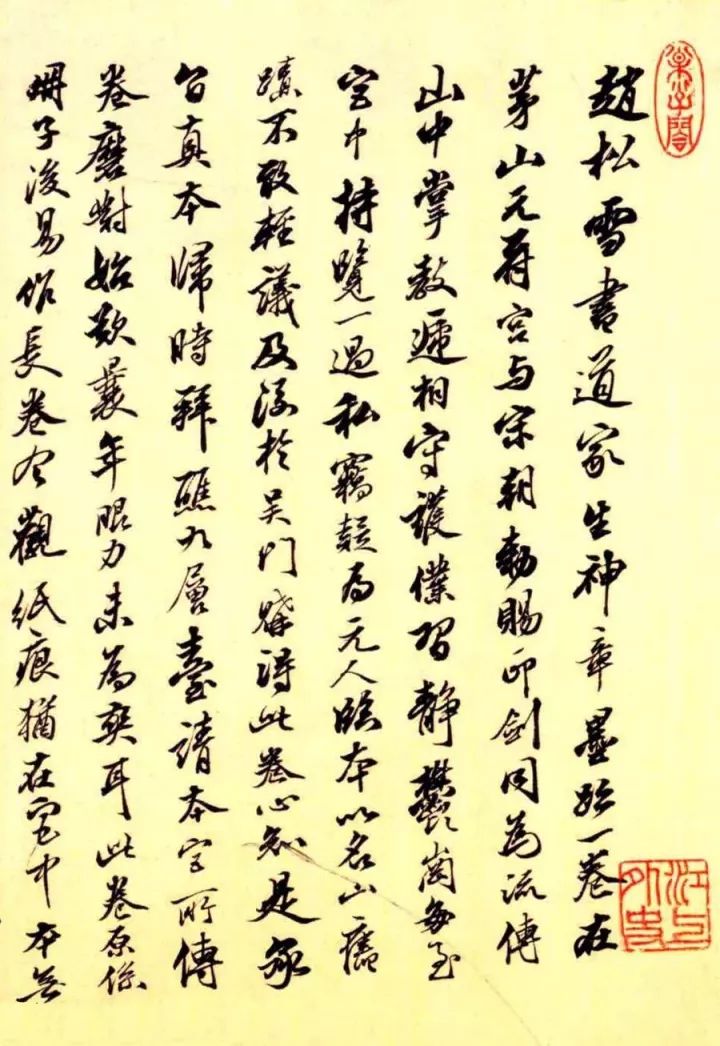 趙松雪書道家生神章墨跡一卷在
茅山元符宮与宋朝勅賜印劍同為流傳
山中掌教遞相守護僕習靜欝崗每至
宮中持覽一過私竊疑為元人臨本以名山舊
蹟不敢輕議及後於吳門購得此卷心知是承
旨真本歸時拜醮九層臺請本宮所傳
卷磨對始歎曩年眼力未為爽耳此卷原係
冊子後易作長卷今觀紙痕猶在宮中本無
江上外史